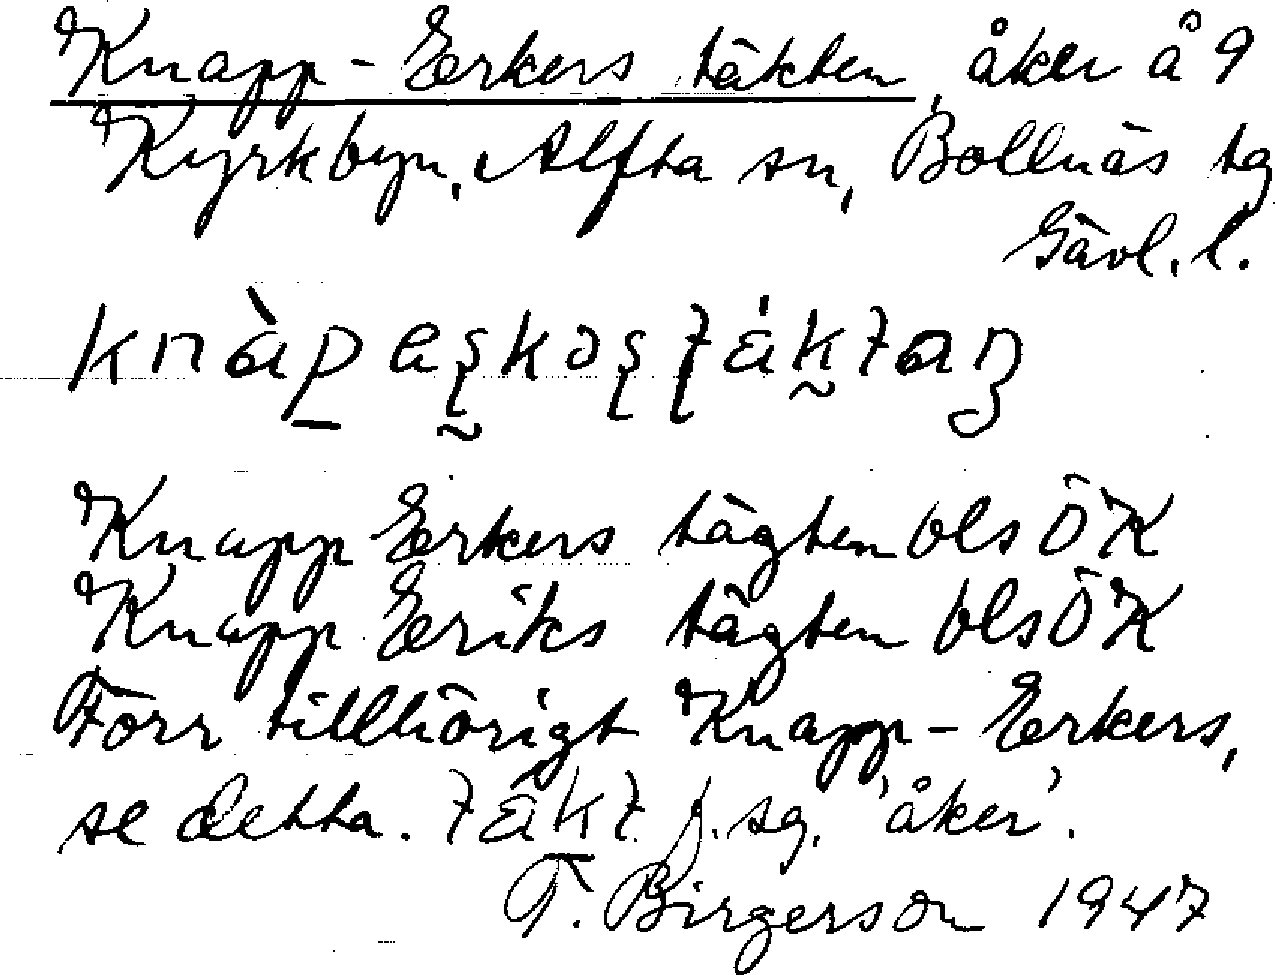 Knapp-Erkers täkten, åker å 9
Kyrkbyn, Alfta sn, Bollnäs tg
Gävl. l.
Knapp Erkers tägten bls ÖK
Knapp Eriks tägten bls ÖK
Förr tillhörigt Knapp-Erkers,
se detta. f. sg. 'åker'.
T. Birgerson 1947